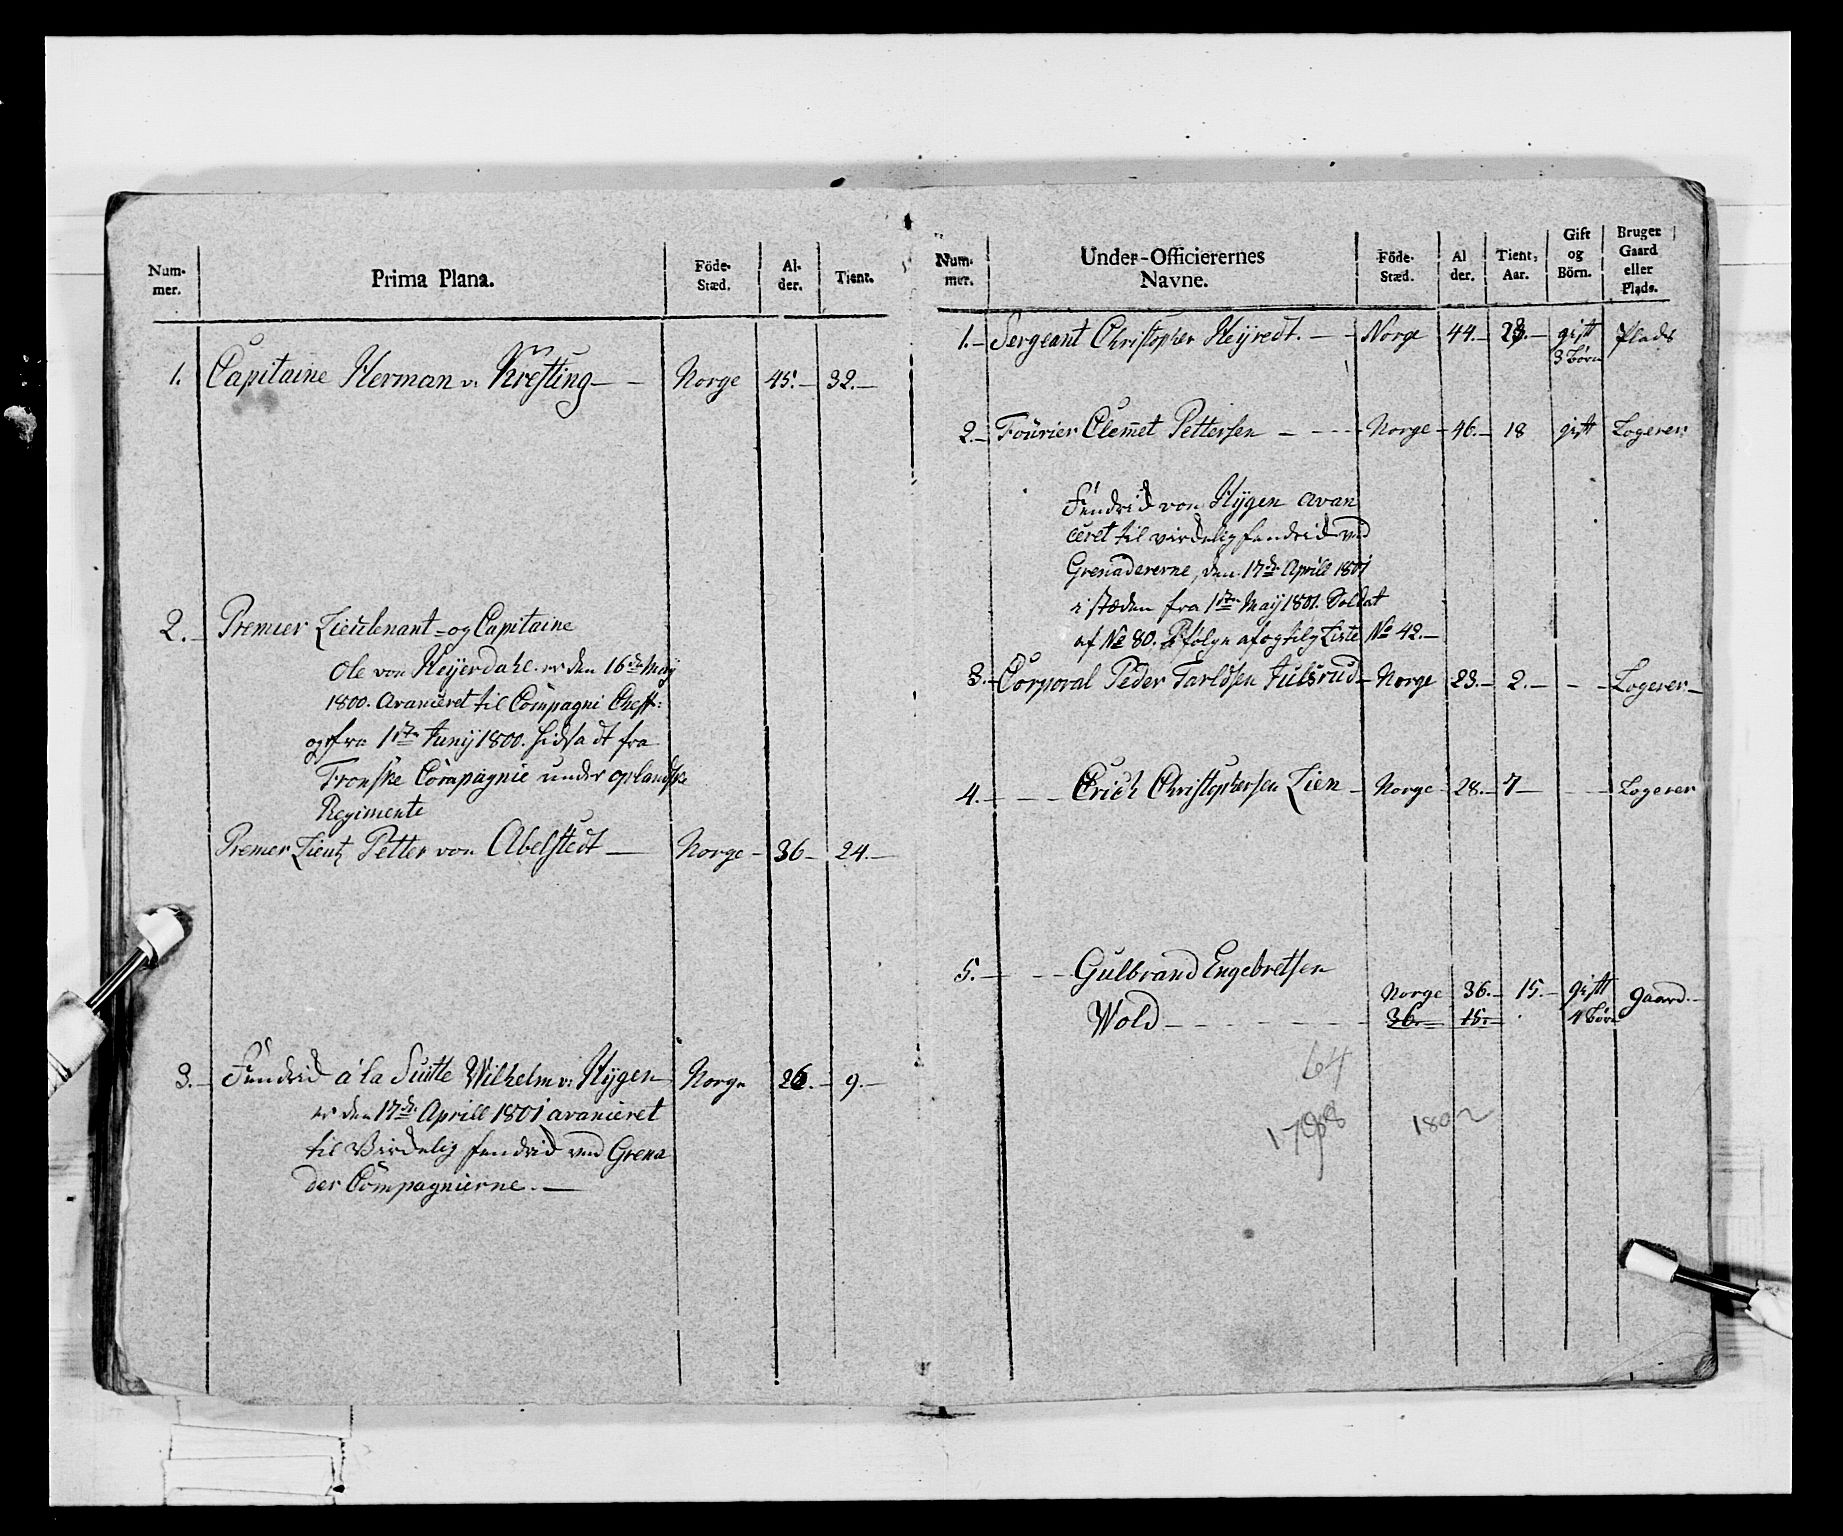 Num-
mer.
Prima Plana.
Föde-
Stæd.
Al-
der.
Tient.
1. Capitaine Herman v. Krefting — — Norge 45.— 32.—
2.— Premier Lieutenant — og Capitaine
Ole von Heyerdahl er den 16de May
1800. Avancieret til Compagni Cheff:
og fra 1ste Junij 1800. hidsadt fra
Fronske Compagnie under oplandske
Regimente
Premer Lieut: Petter von Abelstedt — Norge — 36— 24.—
3.— Fendrich a la Suitte Wilhelm v: Hygen Norge 26.— 9.—
er den 17de Aprill 1801 avancieret
til Virkelig fendrich ved Grena
der Compagnierne. —
Num-
mer.
Under-Officierernes
Navne.
Föde-
Stæd.
Al
der.
Tient,
Aar.
Gift
og
Börn.
Bruger
Gaard
eller
Plads.
1.— Sergeant Christopher Heyredt. — — Norge 44.— 28.— gift Plads
3 Börn
2.— Fourier Clemet Pettersen — - - - Norge — 46.— 18 gift Logerer
Fendrich von Hygen avan
ceret til virkelig fendrich ved
Grenadererne, den 17de Aprill 1801
i stæden fra 1ste May 1801. Soldat
af No 80. Lifølge afgtilg Liste No 42.—
3.— Corporal Peder Tarldsen Julsrud — Norge 23.— 2.— — - — Logerer —
4.— — — Erich Christophersen Lien — Norge — 28.— 7— — — Logerer
5.— — — Gulbrand Engebretsen
Norge 36.— 15.— gift gaard.—
Wold — - - - - - 36.— 15.— 4 Börn
64
1798 1802